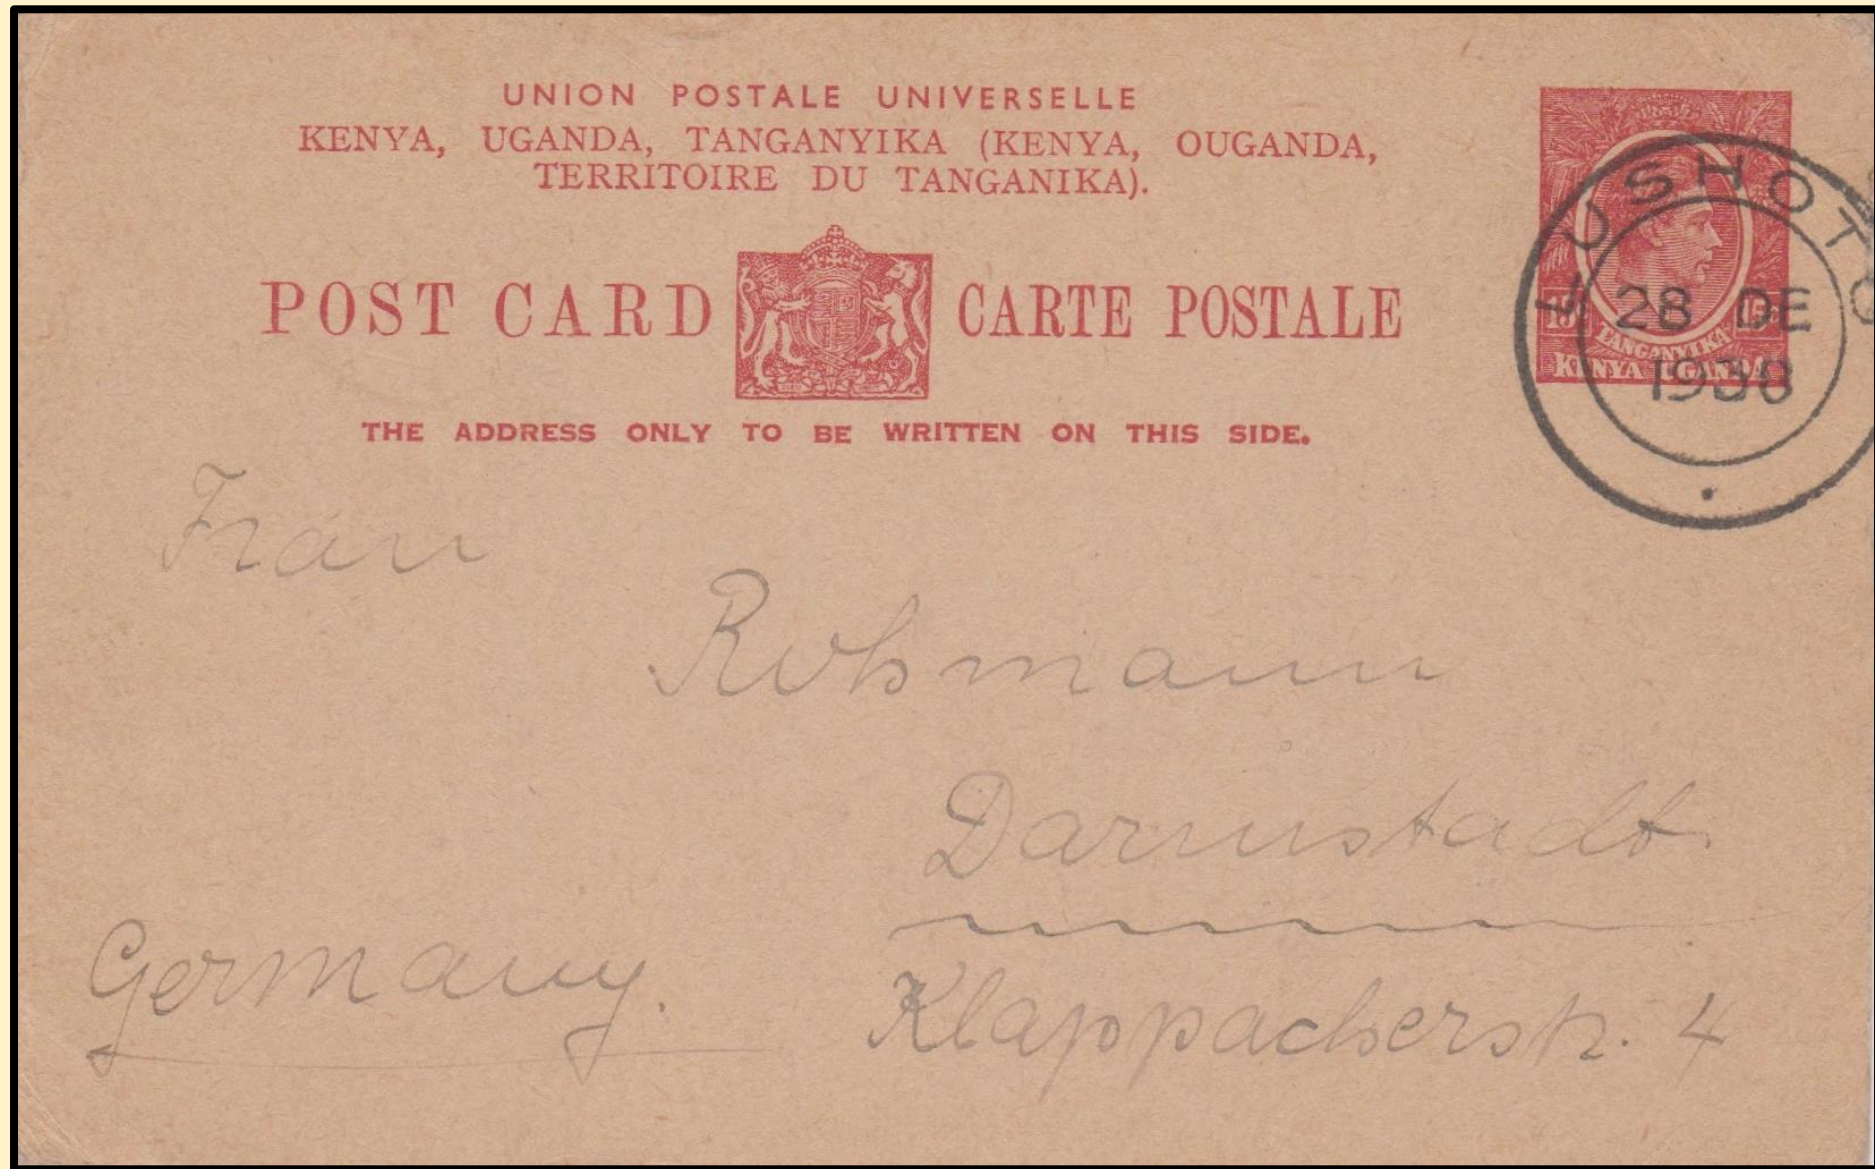 UNION POSTALE UNIVERSELLE
KENYA, UGANDA, TANGANYIKA (KENYA, OUGANDA,
TERRITOIRE DU TANGANIKA).
POST CARD CARTE POSTALE
THE ADDRESS ONLY TO BE WRITTEN ON THIS SIDE.
TANGANYIKA
KENYA UGANDA
LUSHOTO
28 DE
1938
Frau
Rohmann
Darmstadt
Germany.
Klappacherstr. 4